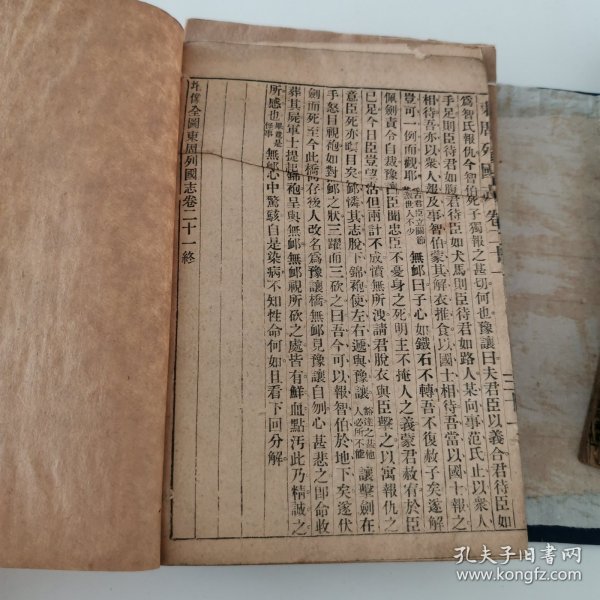 東周列國志 卷二十一
爲智氏報仇今智伯死子獨報之甚切何也豫讓曰夫君臣以義合君待臣如
手足則臣待君如腹心君待臣如犬馬則臣待君如路人某向事范氏止以衆人
相待吾亦以衆人報及事智伯蒙其解衣推食以國士相待吾當以國士報之
豈可一例而觀耶 無卹曰子心如鐵石不轉吾不復赦子矣遂解
佩劍責令自裁豫讓曰臣聞忠臣不憂身之死明主不掩人之義蒙君赦宥於臣
已足今日臣豈望活但兩計不成憤無所洩請君脫衣與臣擊之以寓報仇之
意臣死亦瞑目矣無卹憐其志脫下錦袍使左右遞與豫讓 豁達之甚他人必所不能 讓掣劍在
手怒目視袍如對無卹之狀三躍而三砍之曰吾今可以報智伯於地下矣遂伏
劍而死至今此橋尚存後人改名爲豫讓橋無卹見豫讓自刎心甚悲之卽命收
葬其屍軍士提起錦袍呈與無卹無卹視所砍之處皆有鮮血點汚此乃精誠之
所感也 無卹心中驚駭自是染病不知性命何如且看下回分解
增像全圖東周列國志卷二十一終
孔夫子旧书网
www.kongfz.com